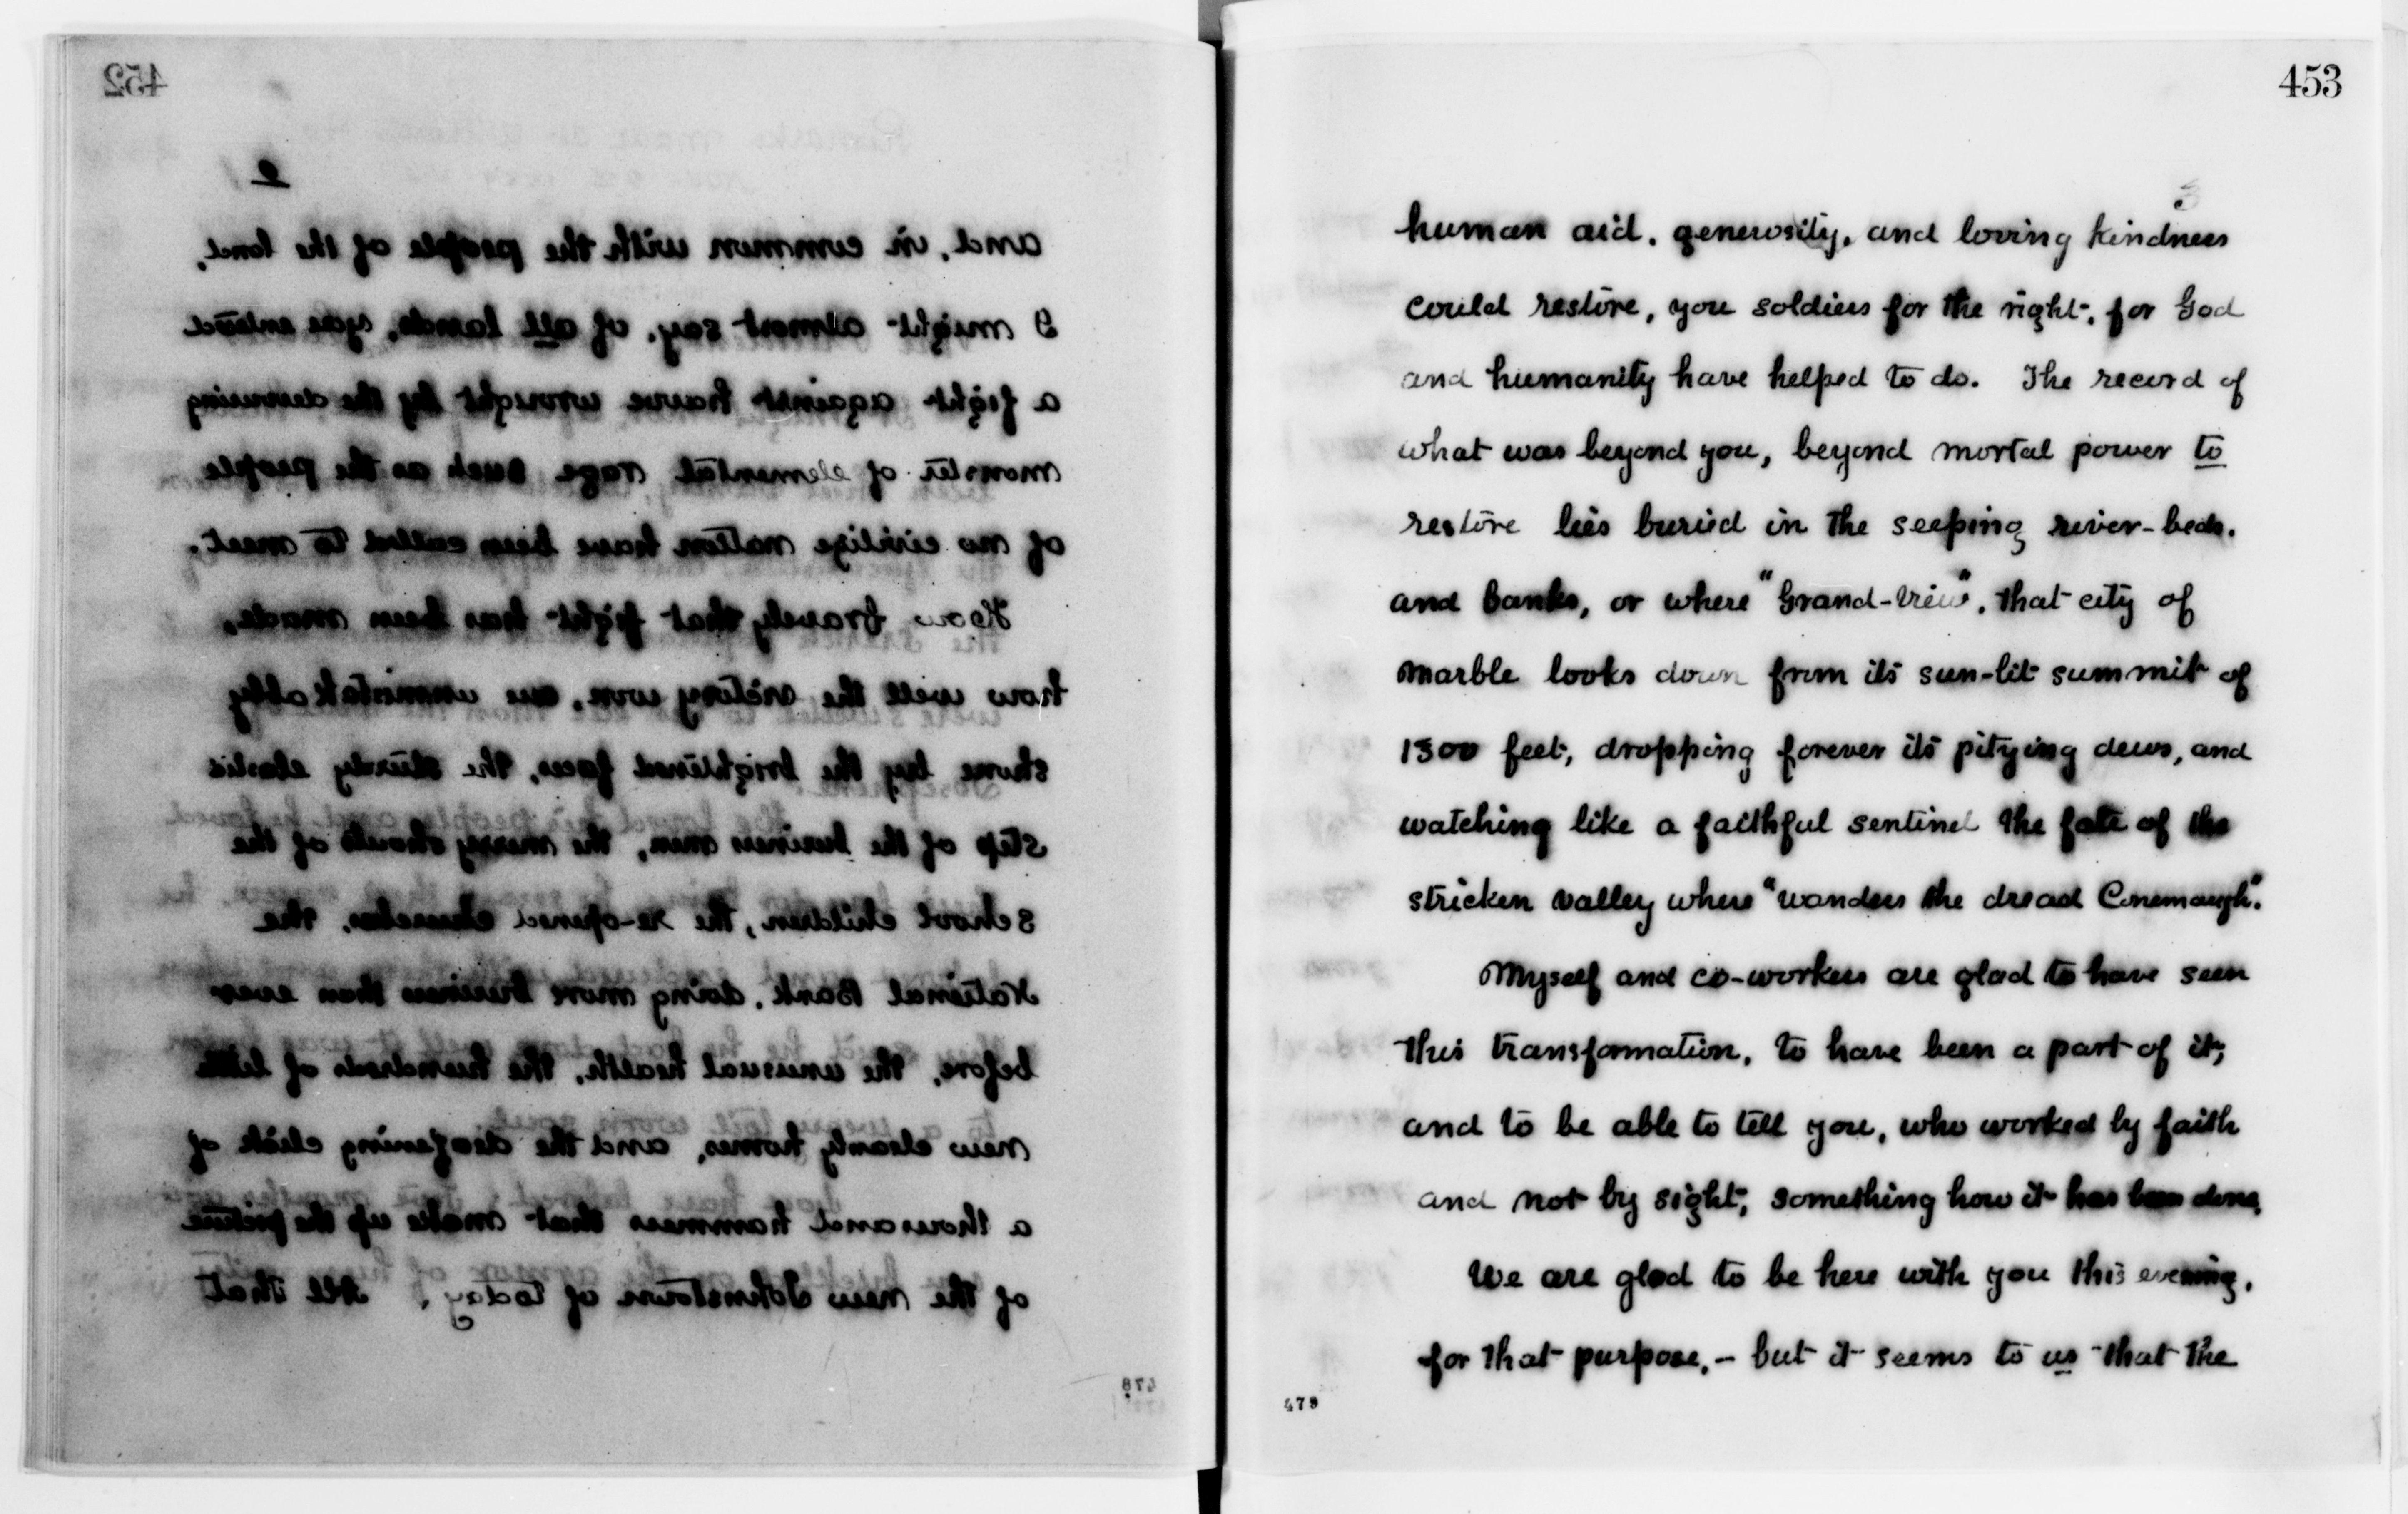 452
2
and, in common with the people of the land,
I might almost say, of all lands, you entered
a fight against havoc wrought by the devouring
monster of elemental rage such as the people
of no civilize nation have been called to meet.
How bravely that fight has been made,
how well the victory won, are unmistakably
shown by the brightened faces, the sturdy elastic
step of the business men, the merry shouts of the
school children, the re-opened churches, the
National Bank, doing more business than ever
before, the unusual health, the hundreds of little
new cleanly homes, and the deafening click of
a thousand hammers that make up the picture
of the new Johnstown of today. All that
478
453
3
human aid, generosity, and loving kindness
could restore, you soldiers for the right, for God
and humanity have helped to do. The record of
what was beyond you, beyond mortal power to
restore lies buried in the seeping river-beds.
and banks, or where "Grand-View", that city of
marble looks down from its sun-lit summit of
1300 feet, dropping forever its pitying dews, and
watching like a faithful sentinel the fate of the
stricken valley where "wanders the dread Conemaugh".
Myself and co-workers are glad to have seen
this transformation, to have been a part of it,
and to be able to tell you, who worked by faith
and not by sight, something how it has been done,
We are glad to be here with you this evening,
for that purpose, - but it seems to us that the
479